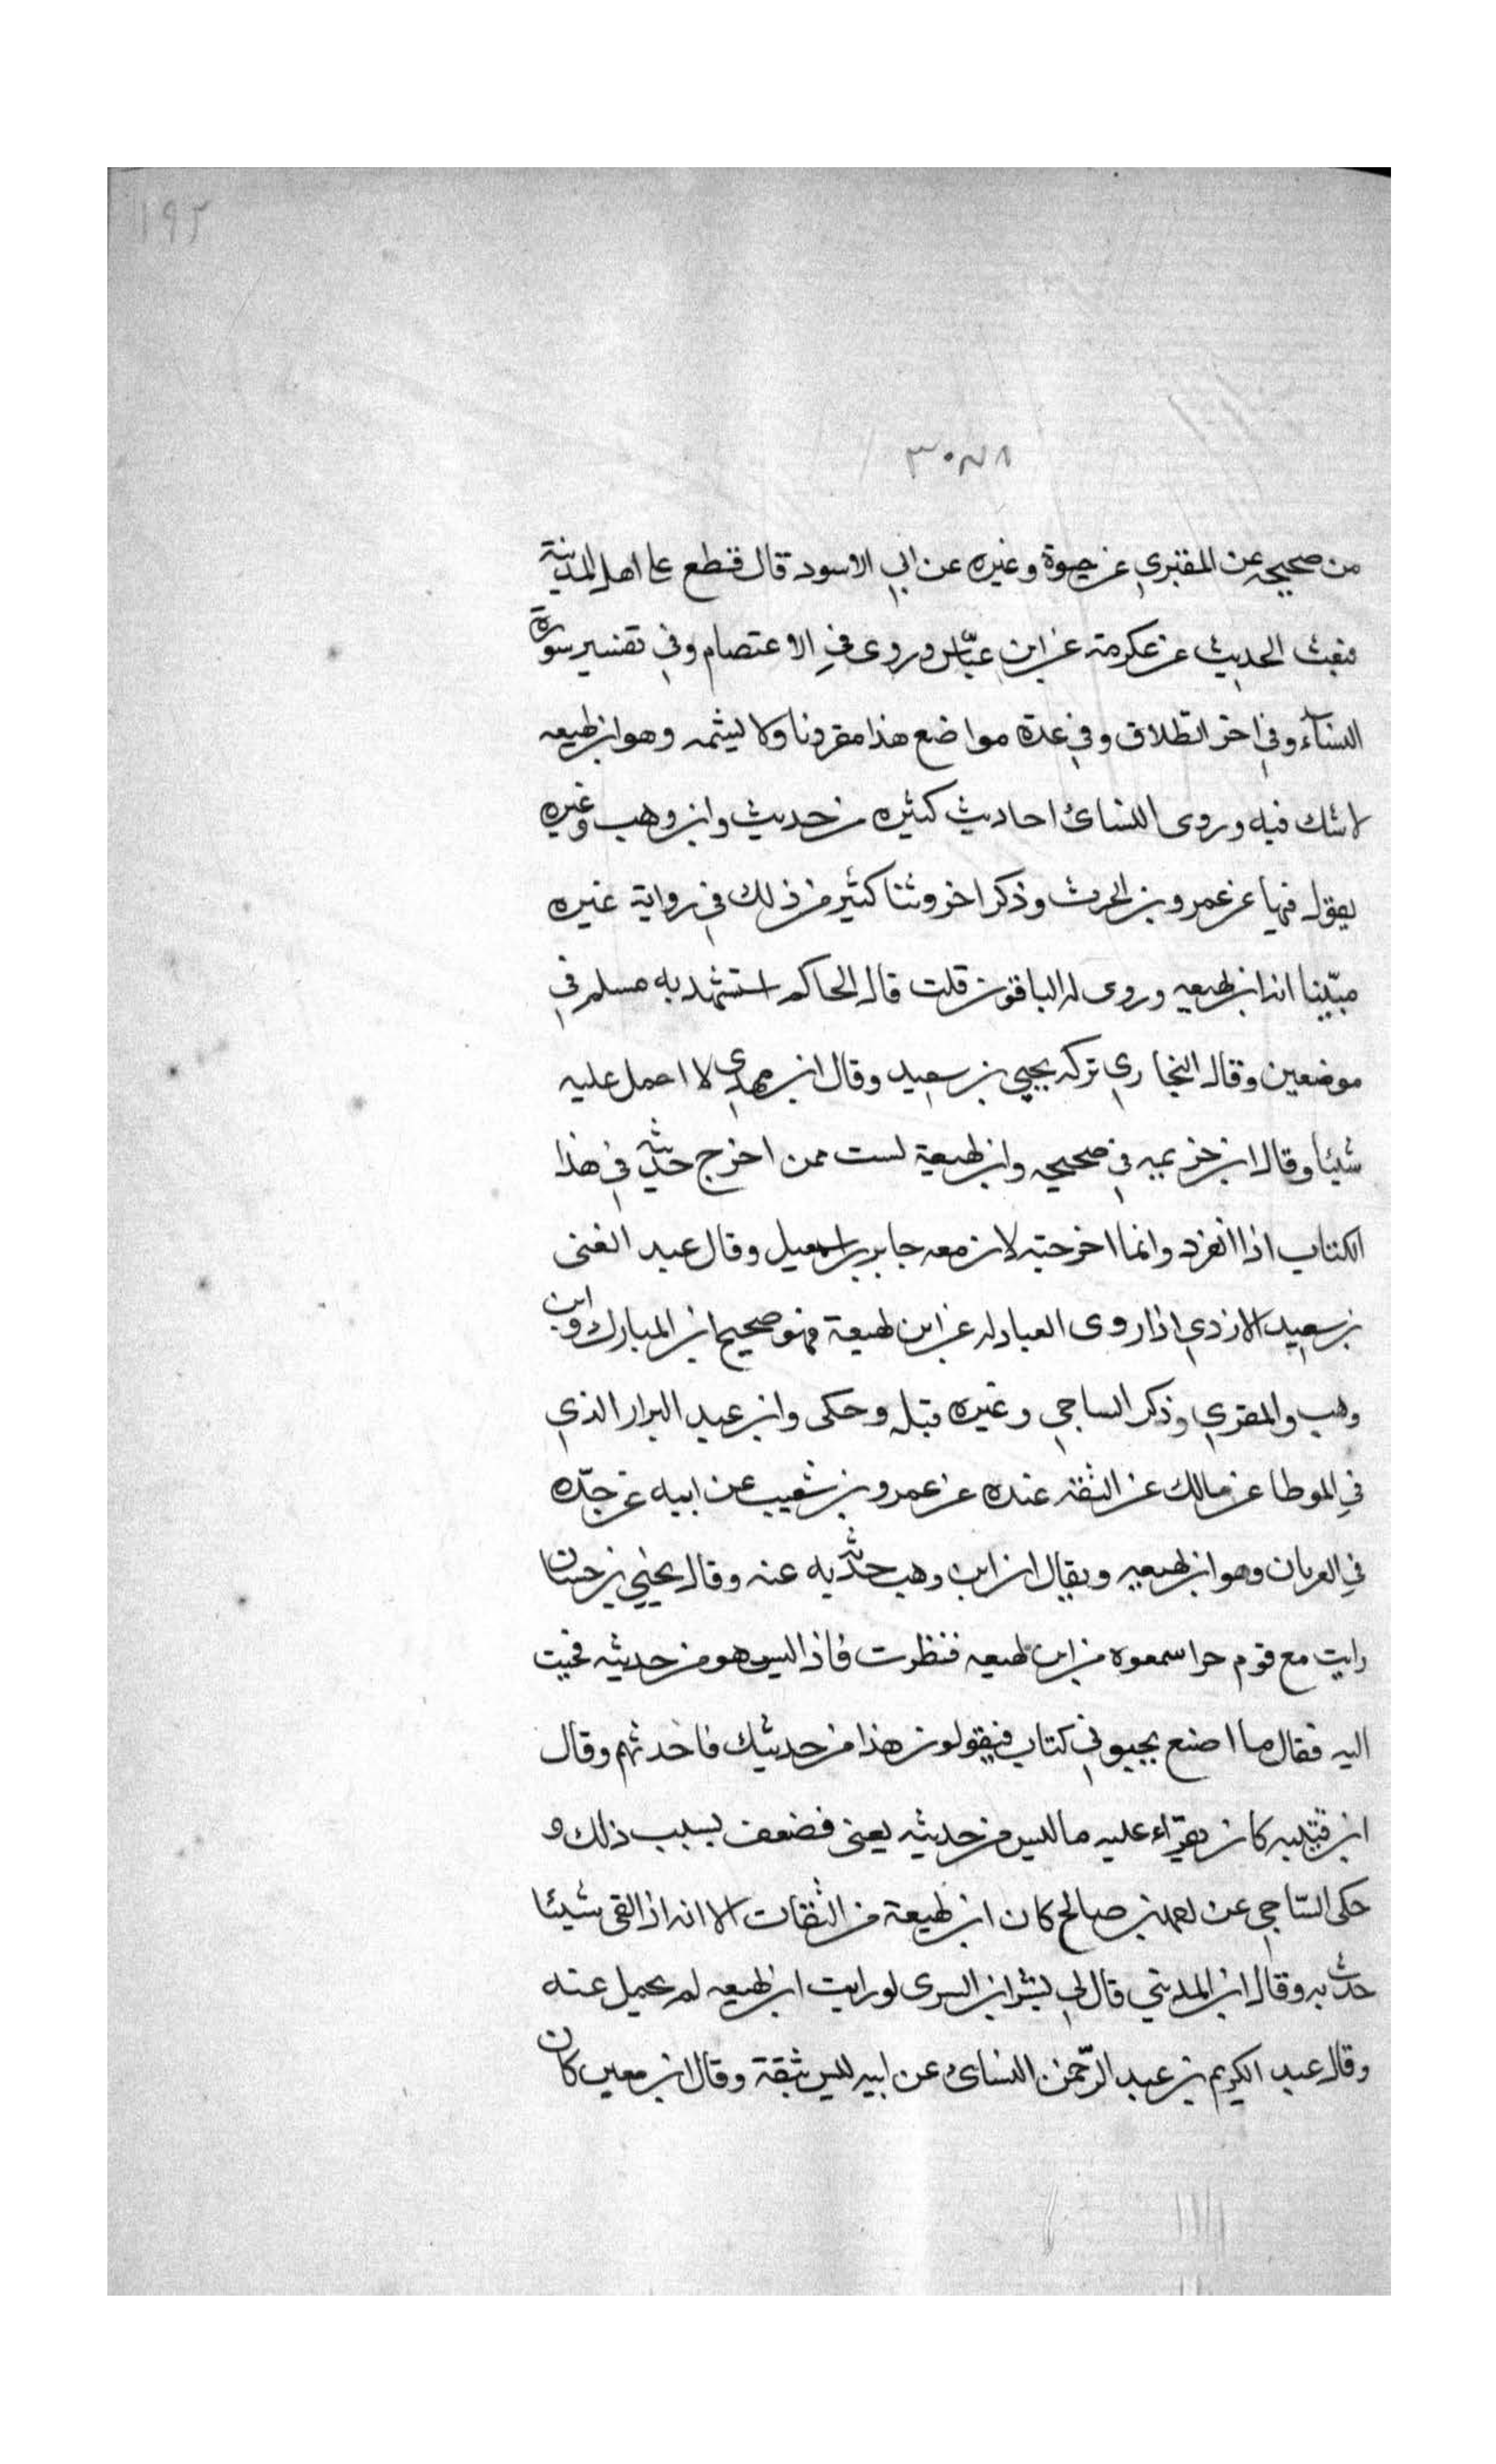 ١٩٢
٣٠٨١
من صحيحه عن المقبري عن حيوة وغيره عن ابي الاسود قال قطع على اهل المدينة
فبعث الحديث عن عكرمة عن ابن عباس وروى في الاعتصام وفي تفسير سورة
النساء وفي اخر الطلاق وفي عدة مواضع هذا مقرونا ولا يسمه وهو ابن لهيعه
لا شك فيه وروى النسائ احاديث كثيره من حديث وابن وهب وغيره
يقول فيها عن عمرو بن الحرث وذكر اخر وثنا كثير من ذلك في رواية غيره
مبينا انه ابن لهيعه وروى له الباقون قلت قال الحاكم استشهد به مسلم في
موضعين وقال البخاري تركه يحيى بن سعيد وقال ابن مهدي لا احمل عليه
شيئا وقال ابن خزيمه في صحيحه وابن لهيعة لست ممن اخرج حديثه في هذا
الكتاب اذا انفرد وانما اخرجته لان معه جابر بن اسمعيل وقال عبد الغنى
بن سعيد الازدي اذا روى العبادله عن ابن لهيعة فهو صحيح ابن المبارك وابن
وهب والمقري وذكر الساجي وغيره مثله وحكى وابن عبد البرار الذي
في الموطا عن مالك عن الثقة عنده عن عمرو بن شعيب عن ابيه عن جده
في العربان وهو ابن لهيعه ويقال ان ابن وهب حدثه به عنه وقال يحيي بن حسان
رايت مع قوم حرا سمعوه من ابن لهيعه فنظرت فاذا ليس هو من حديثه فجيت
اليه فقال ما اصنع يجيبوني كتاب فيقولون هذا من حديثك فاحدثهم وقال
ابن قتيبه كان يقراء عليه ما ليس من حديثه يعنى فضعف بسبب ذلك و
حكى الساجي عن احمد بن صالح كان ابن لهيعة من الثقات الا انه اذا لقى شيئا
حدث به وقال ابن المديني قال لي بشر ابن السرى لو رايت ابن لهيعه لم يحمل عنه
وقال عبد الكريم بن عبد الرحمن النسائ عن ابيه ليس بثقة وقال ابن معين كان